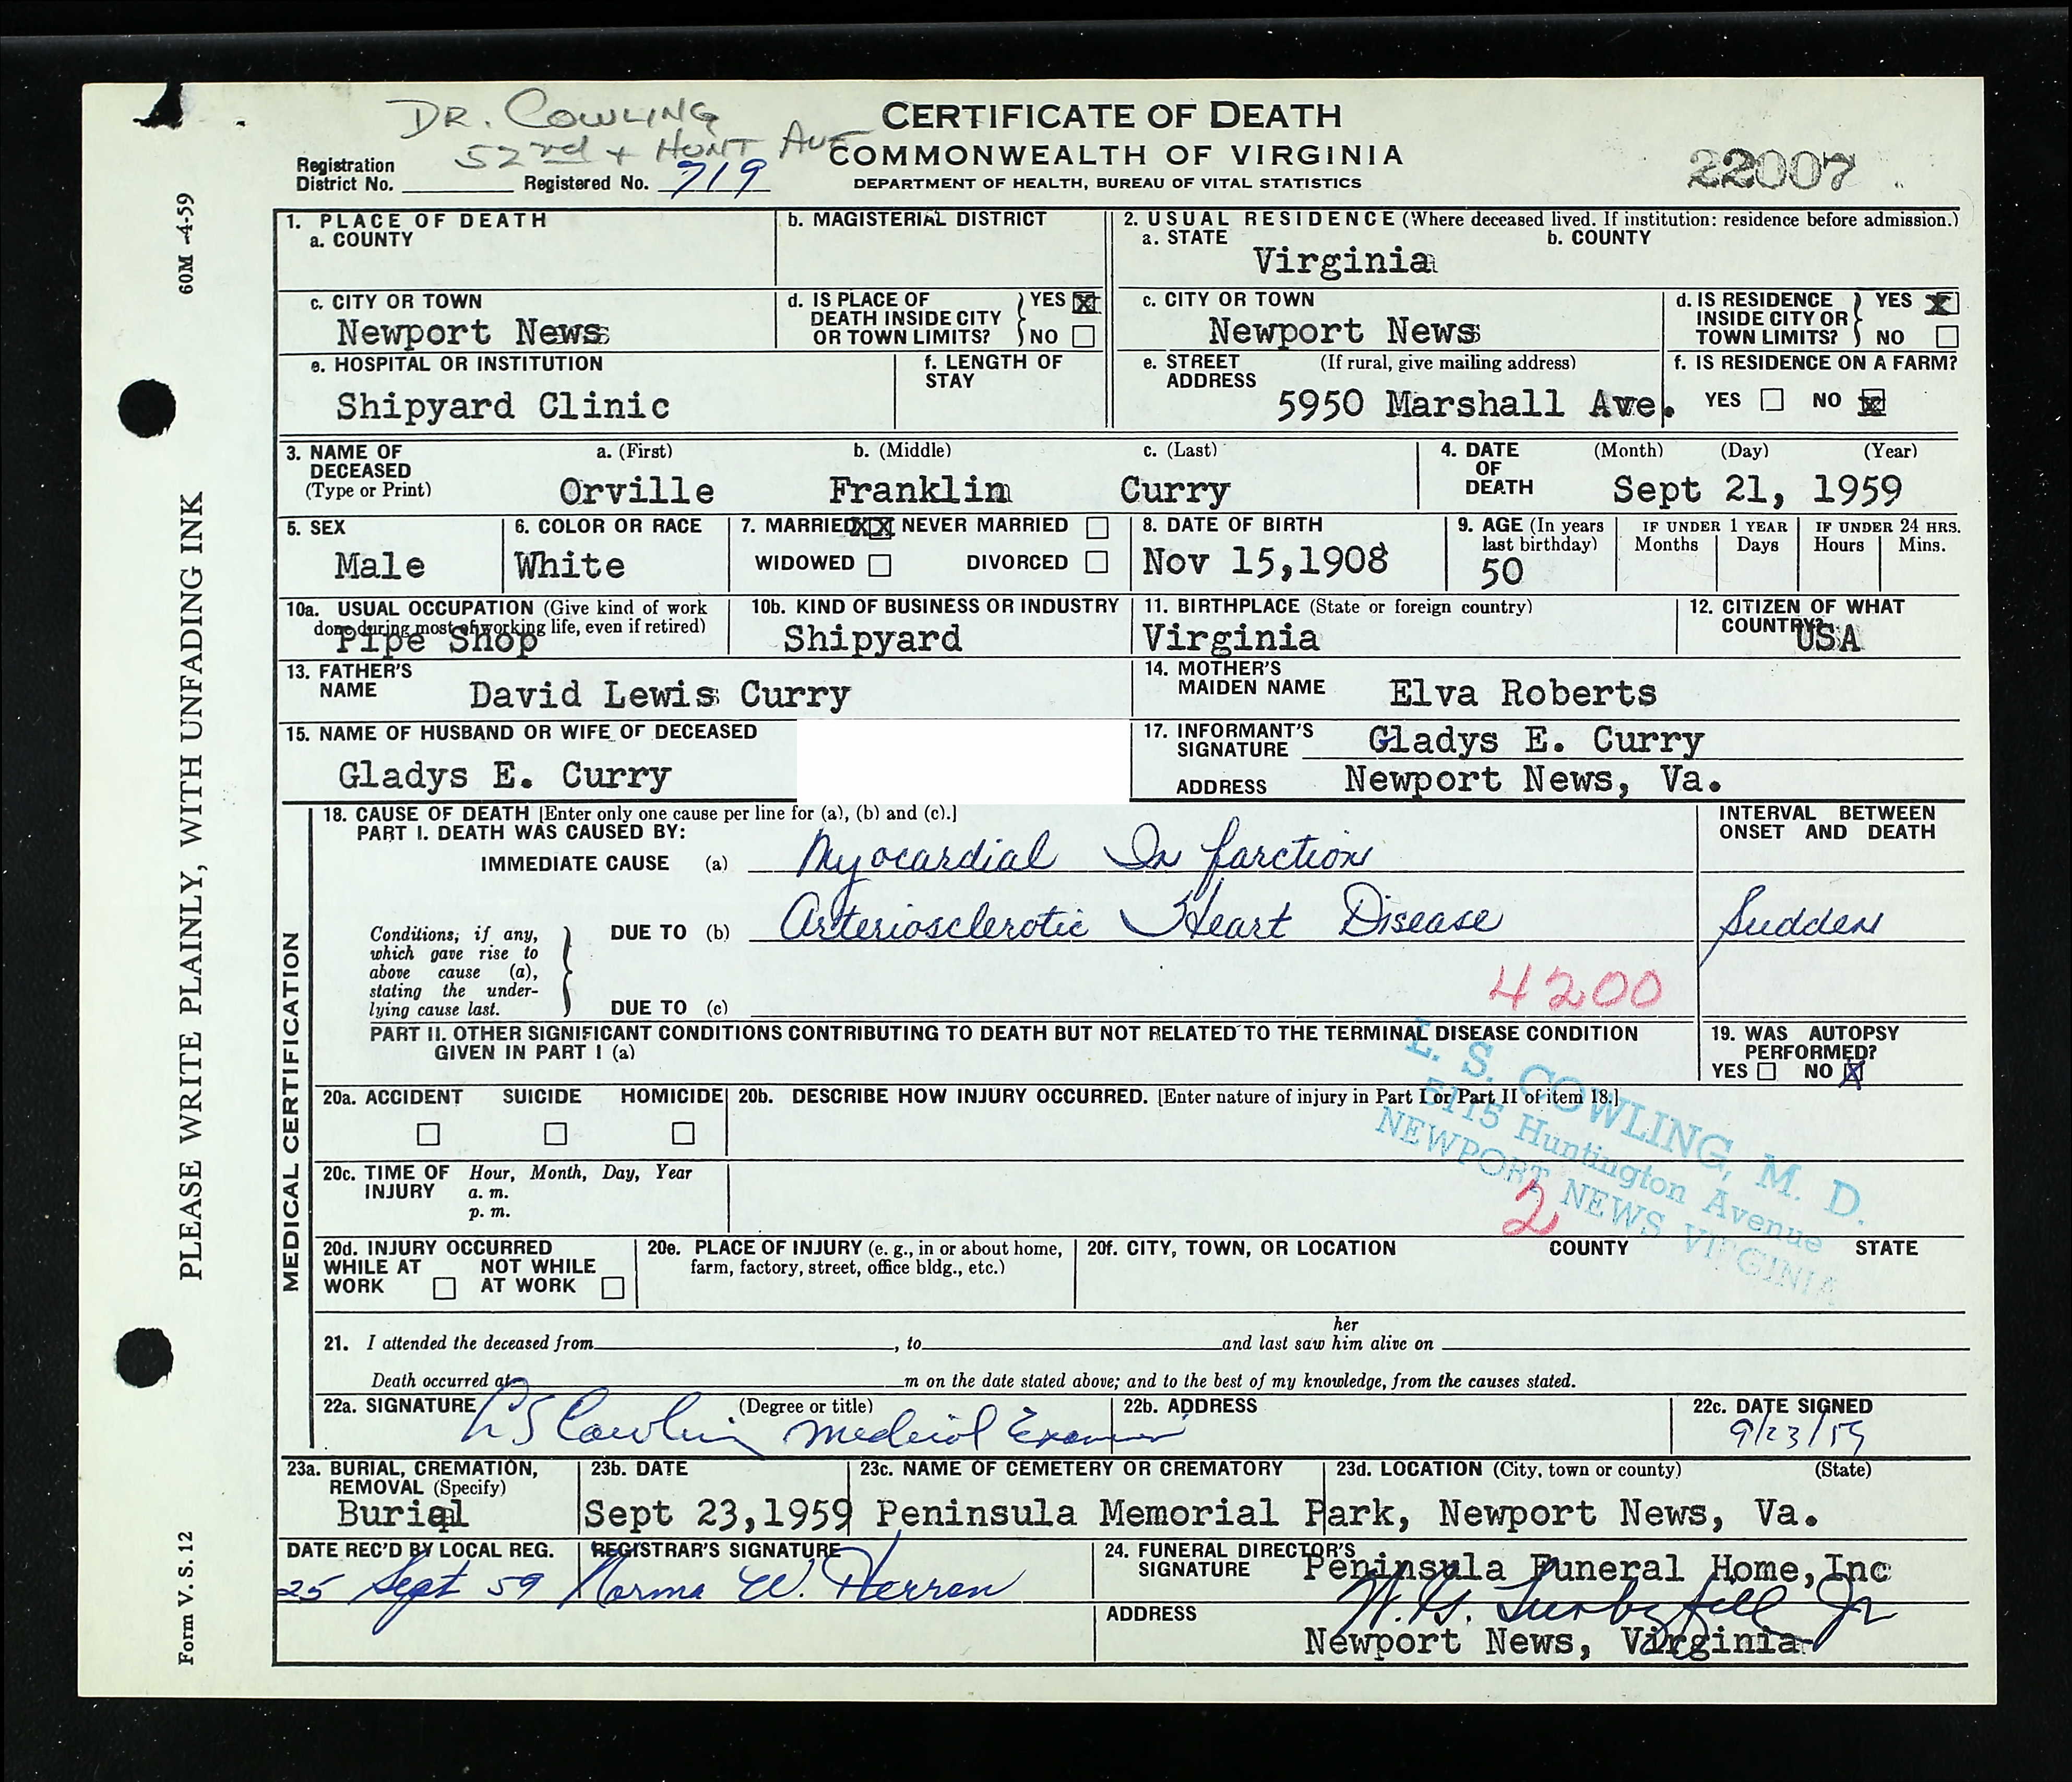 DR. COWLING
52nd + HUNT AVE
CERTIFICATE OF DEATH
COMMONWEALTH OF VIRGINIA
DEPARTMENT OF HEALTH, BUREAU OF VITAL STATISTICS
22007
Registration District No. Registered No. 719
60M -4-59
PLEASE WRITE PLAINLY, WITH UNFADING INK
Form V. S. 12
1. PLACE OF DEATH
a. COUNTY
b. MAGISTERIAL DISTRICT
2. USUAL RESIDENCE (Where deceased lived. If institution: residence before admission.)
a. STATE Virginia
b. COUNTY
c. CITY OR TOWN
Newport News
d. IS PLACE OF DEATH INSIDE CITY OR TOWN LIMITS? YES X NO
c. CITY OR TOWN
Newport News
d. IS RESIDENCE INSIDE CITY OR TOWN LIMITS? YES X NO
e. HOSPITAL OR INSTITUTION
Shipyard Clinic
f. LENGTH OF STAY
e. STREET ADDRESS (If rural, give mailing address)
5950 Marshall Ave.
f. IS RESIDENCE ON A FARM?
YES NO X
3. NAME OF DECEASED (Type or Print)
a. (First) b. (Middle) c. (Last)
Orville Franklin Curry
4. DATE OF DEATH (Month) (Day) (Year)
Sept 21, 1959
5. SEX
Male
6. COLOR OR RACE
White
7. MARRIED XX NEVER MARRIED
WIDOWED DIVORCED
8. DATE OF BIRTH
Nov 15,1908
9. AGE (In years last birthday)
50
IF UNDER 1 YEAR
Months Days
IF UNDER 24 HRS.
Hours Mins.
10a. USUAL OCCUPATION (Give kind of work done during most of working life, even if retired)
Pipe Shop
10b. KIND OF BUSINESS OR INDUSTRY
Shipyard
11. BIRTHPLACE (State or foreign country)
Virginia
12. CITIZEN OF WHAT COUNTRY?
USA
13. FATHER'S NAME David Lewis Curry
14. MOTHER'S MAIDEN NAME Elva Roberts
15. NAME OF HUSBAND OR WIFE OF DECEASED
Gladys E. Curry
17. INFORMANT'S SIGNATURE Gladys E. Curry
ADDRESS Newport News, Va.
MEDICAL CERTIFICATION
18. CAUSE OF DEATH [Enter only one cause per line for (a), (b) and (c).]
PART I. DEATH WAS CAUSED BY:
IMMEDIATE CAUSE (a) Myocardial Infarction
INTERVAL BETWEEN ONSET AND DEATH
Conditions, if any, which gave rise to above cause (a), stating the underlying cause last.
DUE TO (b) Arteriosclerotic Heart Disease
Sudden
DUE TO (c)
4200
PART II. OTHER SIGNIFICANT CONDITIONS CONTRIBUTING TO DEATH BUT NOT RELATED TO THE TERMINAL DISEASE CONDITION GIVEN IN PART I (a)
19. WAS AUTOPSY PERFORMED?
YES NO X
L. S. COWLING, M. D.
5115 Huntington Avenue
NEWPORT NEWS VIRGINIA
20a. ACCIDENT SUICIDE HOMICIDE
20b. DESCRIBE HOW INJURY OCCURRED. [Enter nature of injury in Part I or Part II of item 18.]
20c. TIME OF INJURY Hour, Month, Day, Year
a. m.
p. m.
2
20d. INJURY OCCURRED
WHILE AT WORK NOT WHILE AT WORK
20e. PLACE OF INJURY (e. g., in or about home, farm, factory, street, office bldg., etc.)
20f. CITY, TOWN, OR LOCATION COUNTY STATE
21. I attended the deceased from , to and last saw her him alive on
Death occurred at m on the date stated above; and to the best of my knowledge, from the causes stated.
22a. SIGNATURE (Degree or title)
L S Cowling Medical Examiner
22b. ADDRESS
22c. DATE SIGNED
9/23/59
23a. BURIAL, CREMATION, REMOVAL (Specify)
Burial
23b. DATE
Sept 23,1959
23c. NAME OF CEMETERY OR CREMATORY
23d. LOCATION (City, town or county) (State)
Peninsula Memorial Park, Newport News, Va.
DATE REC'D BY LOCAL REG.
25 Sept 59
REGISTRAR'S SIGNATURE
Norma W. Herren
24. FUNERAL DIRECTOR'S SIGNATURE
Peninsula Funeral Home,Inc
W. G. Turbyfill Jr
ADDRESS
Newport News, Virginia